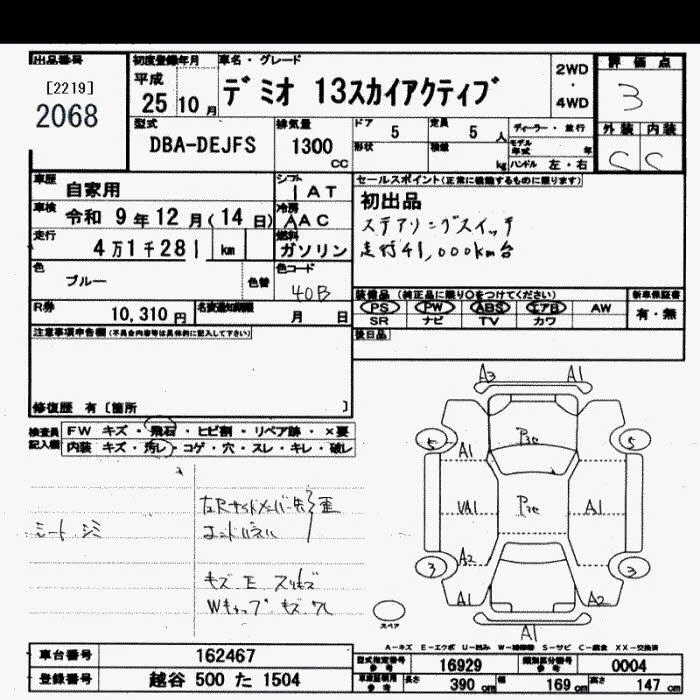 出品番号
[2219]
2068
初度登録年月
平成
25 10 月
車名・グレード
デミオ 13スカイアクティブ
2WD
・
4WD
評価点
3
外装 内装
C C
型式
DBA-DEJFS
排気量
1300
CC
ドア 5
定員 5 人
形状
積載 kg
ディーラー・並行
モデル年式 年
ハンドル 左・右
車歴 自家用
シフト IAT
車検 令和 9 年 12 月 ( 14 日)
冷房 AAC
走行 4万1千281 km
燃料 ガソリン
色 ブルー
色替
色コード 40B
R券 10,310 円
名変通知期限 月 日
セールスポイント(正常に機能するものに限ります)
初出品
ステアリングスイッチ
走行41,000km台
装備品 (純正品に限り○をつけてください)
PS PW ABS エアB AW
SR ナビ TV カワ
新車保証書
有・無
後日品
注意事項申告欄(不具合内容等は具体的に記入して下さい)
修復歴 有〔箇所 〕
検査員記入欄
FW キズ・飛石・ヒビ割・リペア跡・×要
内装 キズ・汚レ・コゲ・穴・スレ・キレ・破レ
シート シミ
キズ E スリキズ
Wキャップ キズ
A3 A1
5 5
A1
P3c
VA1
A1
A2
3 3
A1 A2
A1
スペア
A-キズ E-エクボ U-凹み W-補修跡 S-サビ C-腐食 XX-交換済
車台番号 162467
登録番号 越谷 500 た 1504
型式指定番号参考 16929
類別区分番号参考 0004
車庫証明用参考
長さ 390 cm 幅 169 cm 高さ 147 cm